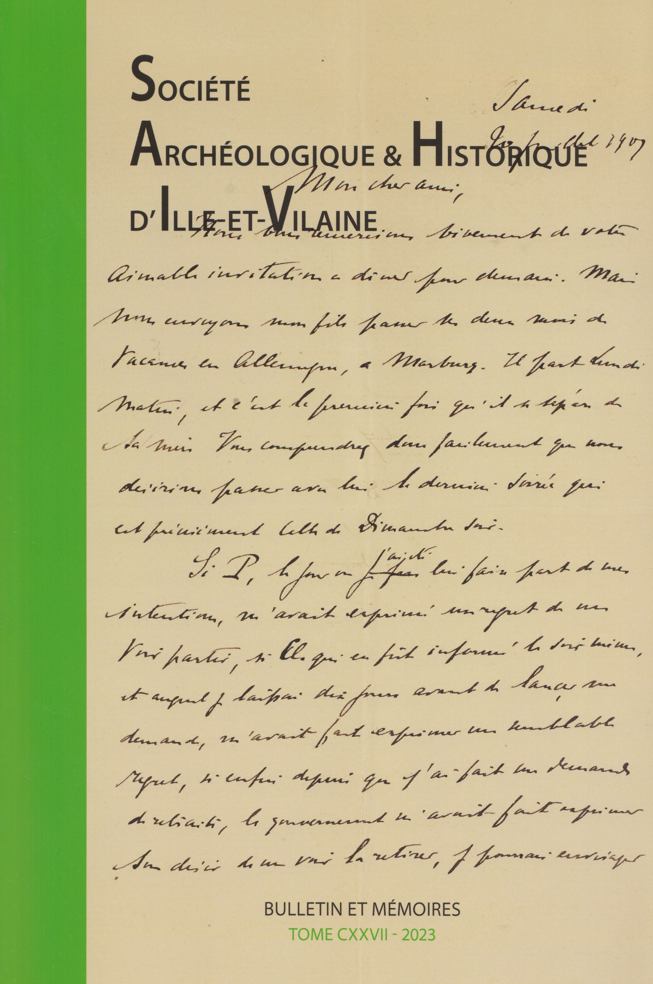 Société
Archéologique & Historique
d'Ille-et-Vilaine
Samedi
juillet 1909
Mon cher ami,
Nous vous remercions vivement de votre
aimable invitation a diner pour demain. Mais
nous envoyons mon fils passer les deux mois de
vacances en Allemagne, a Marburg. Il part Lundi
matin, et c'est la première fois qu'il se sépare de
sa mère Vous comprendrez donc facilement que nous
désirions passer avec lui la dernière soirée qui
est précisément celle de Dimanche soir.
Si P, le jour où j'ai été lui faire part de mes
intentions, m'avait exprimé un regret de me
voir partir, si Cl qui en fût informé le soir même,
et auquel je laissai dix jours avant de lancer ma
demande, m'avait fait exprimer un semblable
regret, si enfin depuis que j'ai fait ma demande
de retraite, le gouvernement m'avait fait exprimer
son désir de me voir la retirer, je pourrais envisager
BULLETIN ET MÉMOIRES
TOME CXXVII - 2023